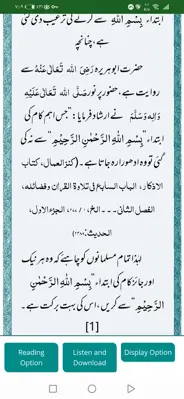 ابتداء ”بِسْمِ اللّٰهِ“ سے کرنے کی ترغیب دی گئی
ہے، چنانچہ
حضرت ابوہریرہ رَضِیَ اللہ تَعَالٰی عَنْہُ سے
روایت ہے، حضور پر نور صَلَّی اللہ تَعَالٰی عَلَیْہِ
وَاٰلِہٖ وَسَلَّمَ نے ارشاد فرمایا: ”جس اہم کام کی
ابتداء ”بِسْمِ اللّٰهِ الرَّحْمٰنِ الرَّحِیْمِ“ سے نہ کی
گئی تو وہ ادھورا رہ جاتا ہے۔ (کنز العمال، کتاب
الاذکار، الباب السابع فی تلاوة القراٰن وفضائلہ،
الفصل الثانی۔۔۔ الخ، ۱ / ۲۷۷، الجزء الاول،
الحدیث: ۲۴۸۸)
لہٰذا تمام مسلمانوں کو چاہئے کہ وہ ہر نیک
اور جائز کام کی ابتداء ”بِسْمِ اللّٰهِ الرَّحْمٰنِ
الرَّحِیْمِ“ سے کریں، اس کی بہت برکت ہے۔
[1]
Reading Option
Listen and Download
Display Option